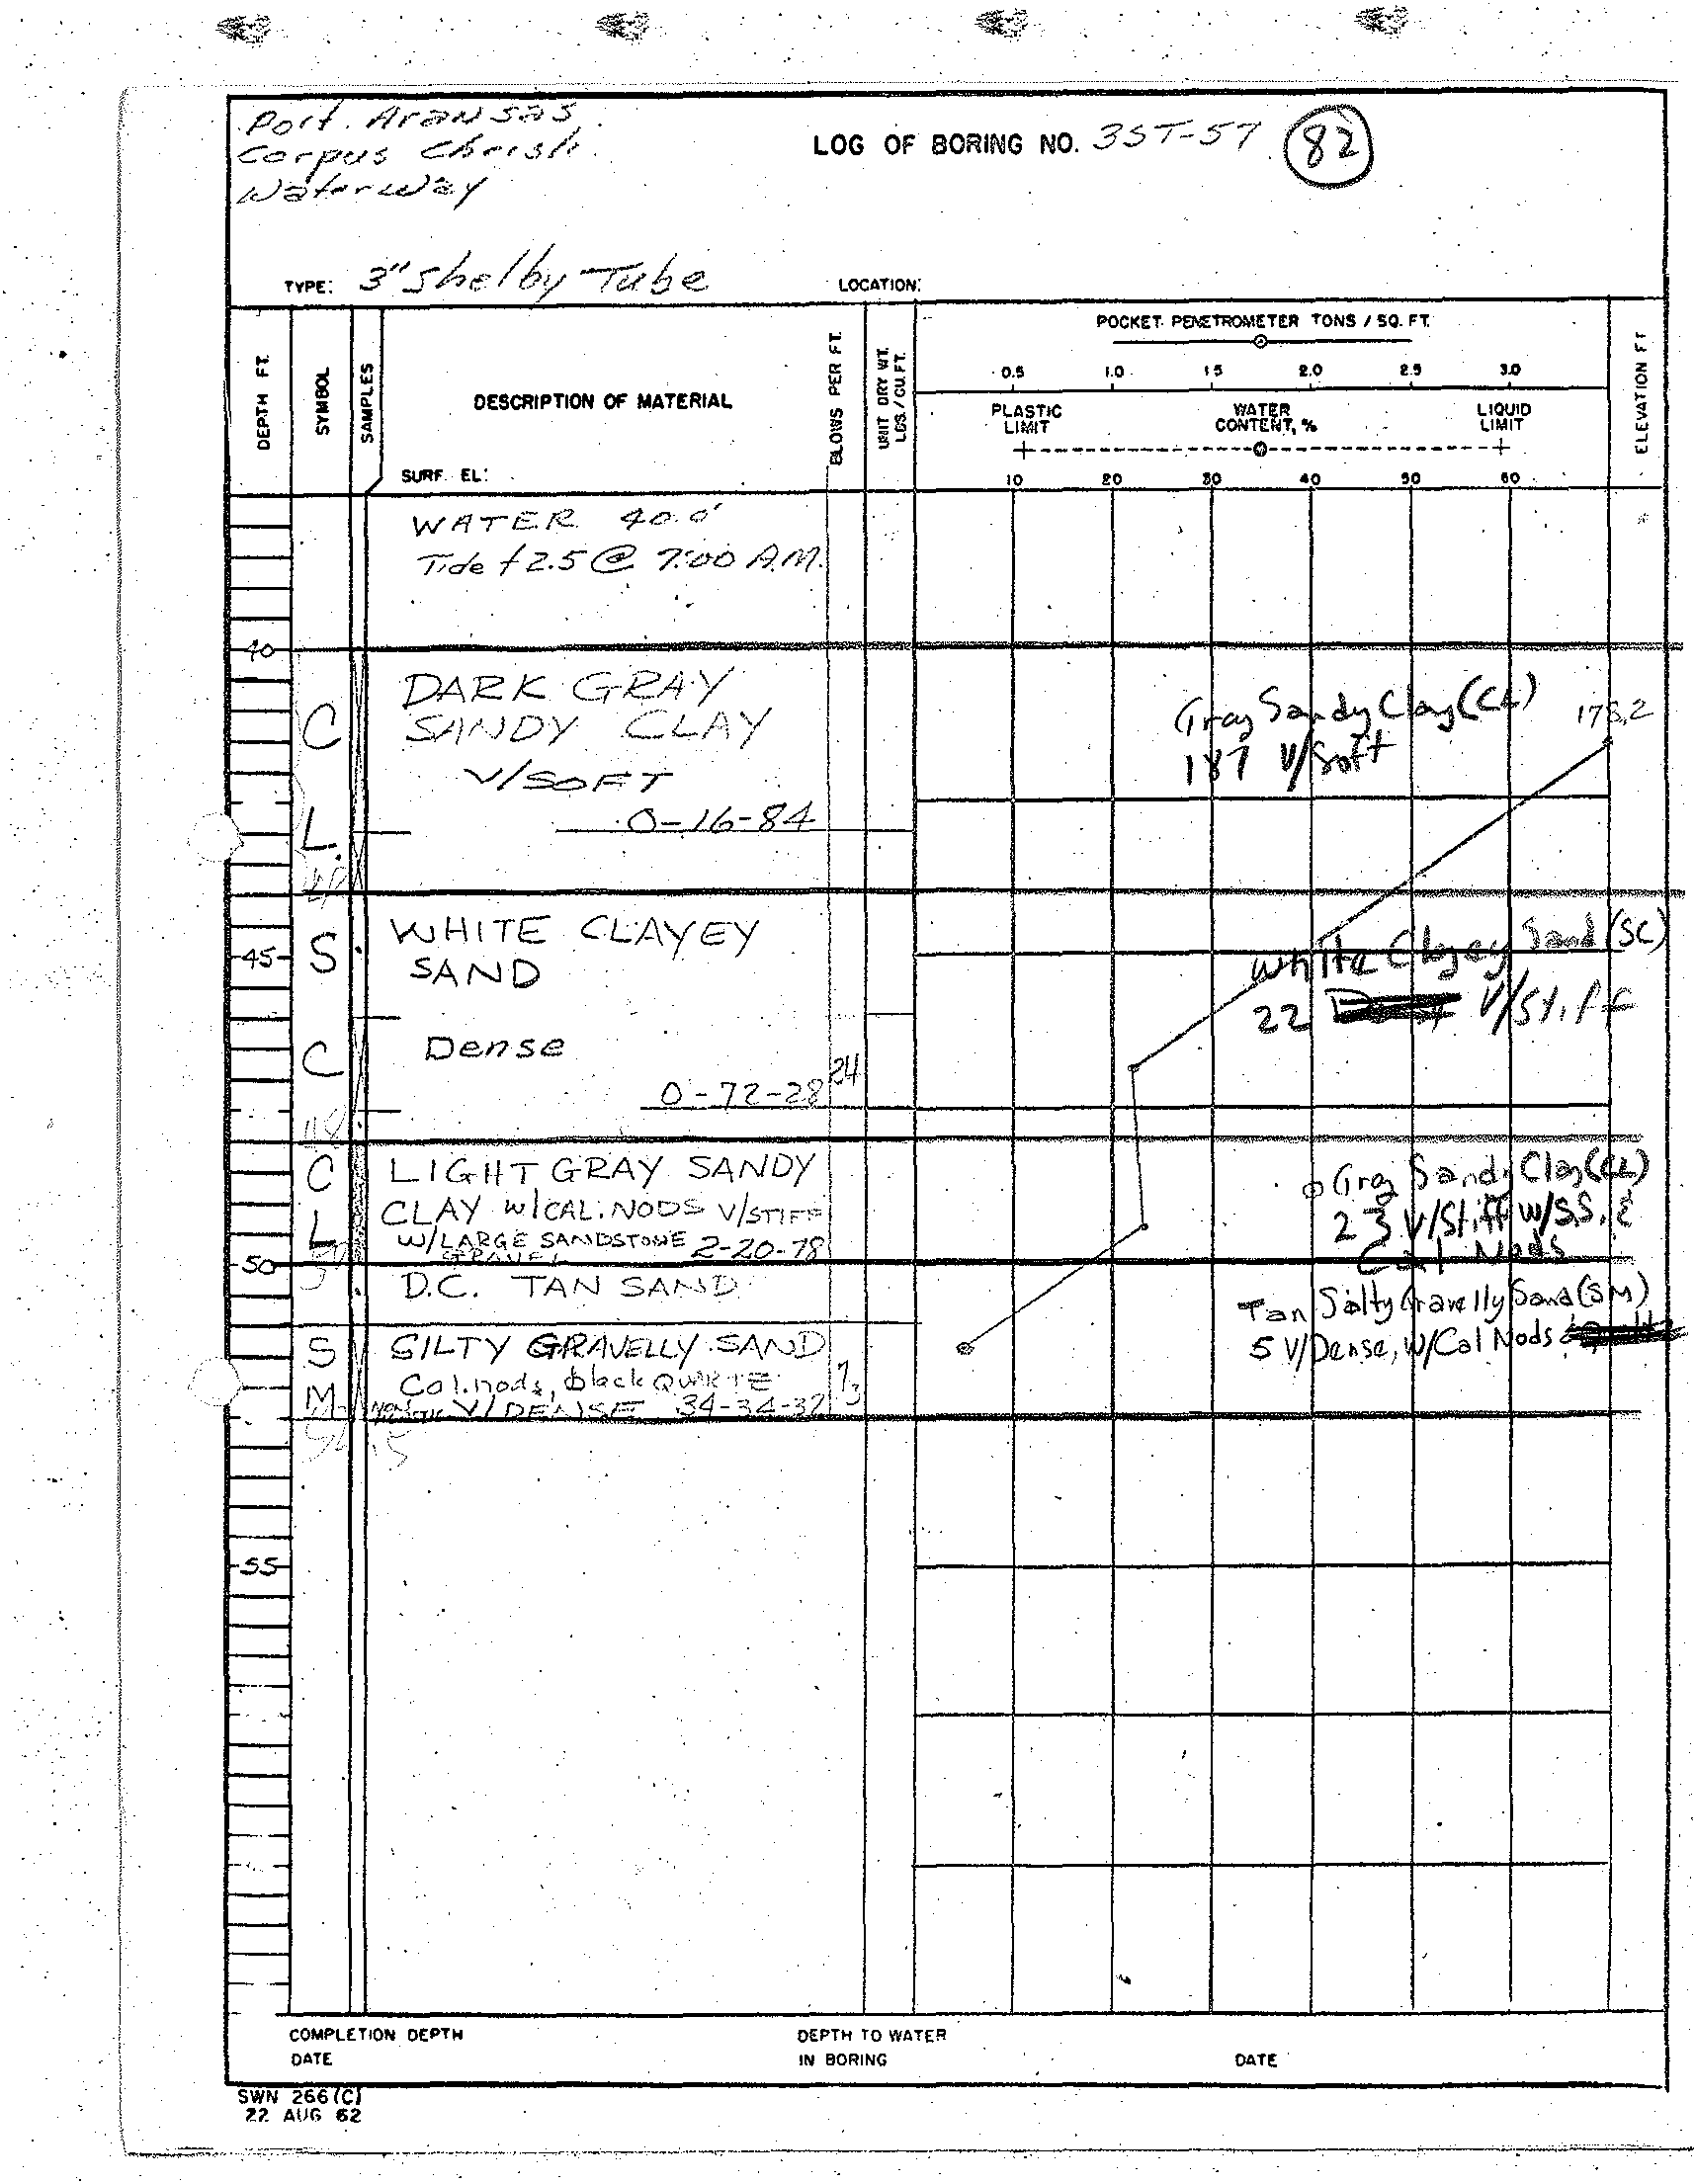 Port Aransas
Corpus Christi
Waterway
LOG OF BORING NO. 3ST-57 82
TYPE: 3" Shelby Tube LOCATION:
DEPTH FT.
SYMBOL
SAMPLES
DESCRIPTION OF MATERIAL
SURF. EL:
BLOWS PER FT.
UNIT DRY WT. LBS./CU.FT.
POCKET PENETROMETER TONS / SQ. FT.
0.5 1.0 1.5 2.0 2.5 3.0
PLASTIC LIMIT
WATER CONTENT, %
LIQUID LIMIT
10 20 30 40 50 60
ELEVATION FT
WATER 40.0'
Tide +2.5 @ 7:00 A.M.
40
DARK GRAY
SANDY CLAY
V/SOFT
0-16-84
C
L
Gray Sandy Clay (CL)
187 V/Soft
WHITE CLAYEY
45 S
SAND
C
Dense
24
0-72-28
White Clayey Sand (SC)
22 V/Stiff
C
LIGHT GRAY SANDY
CLAY W/CAL. NODS V/STIFF
L
W/LARGE SANDSTONE 2-20-78
GRAVEL
Gray Sandy Clay (CL)
23 V/Stiff W/S.S. &
Cal Nods
50
D.C. TAN SAND
S
SILTY GRAVELLY SAND
Cal. nods, black
M
V/DENSE 34-34-32
Tan Silty Gravelly Sand (SM)
5 V/Dense, W/Cal Nods
55
COMPLETION DEPTH
DATE
DEPTH TO WATER
IN BORING
DATE
SWN 266 (C)
22 AUG 62